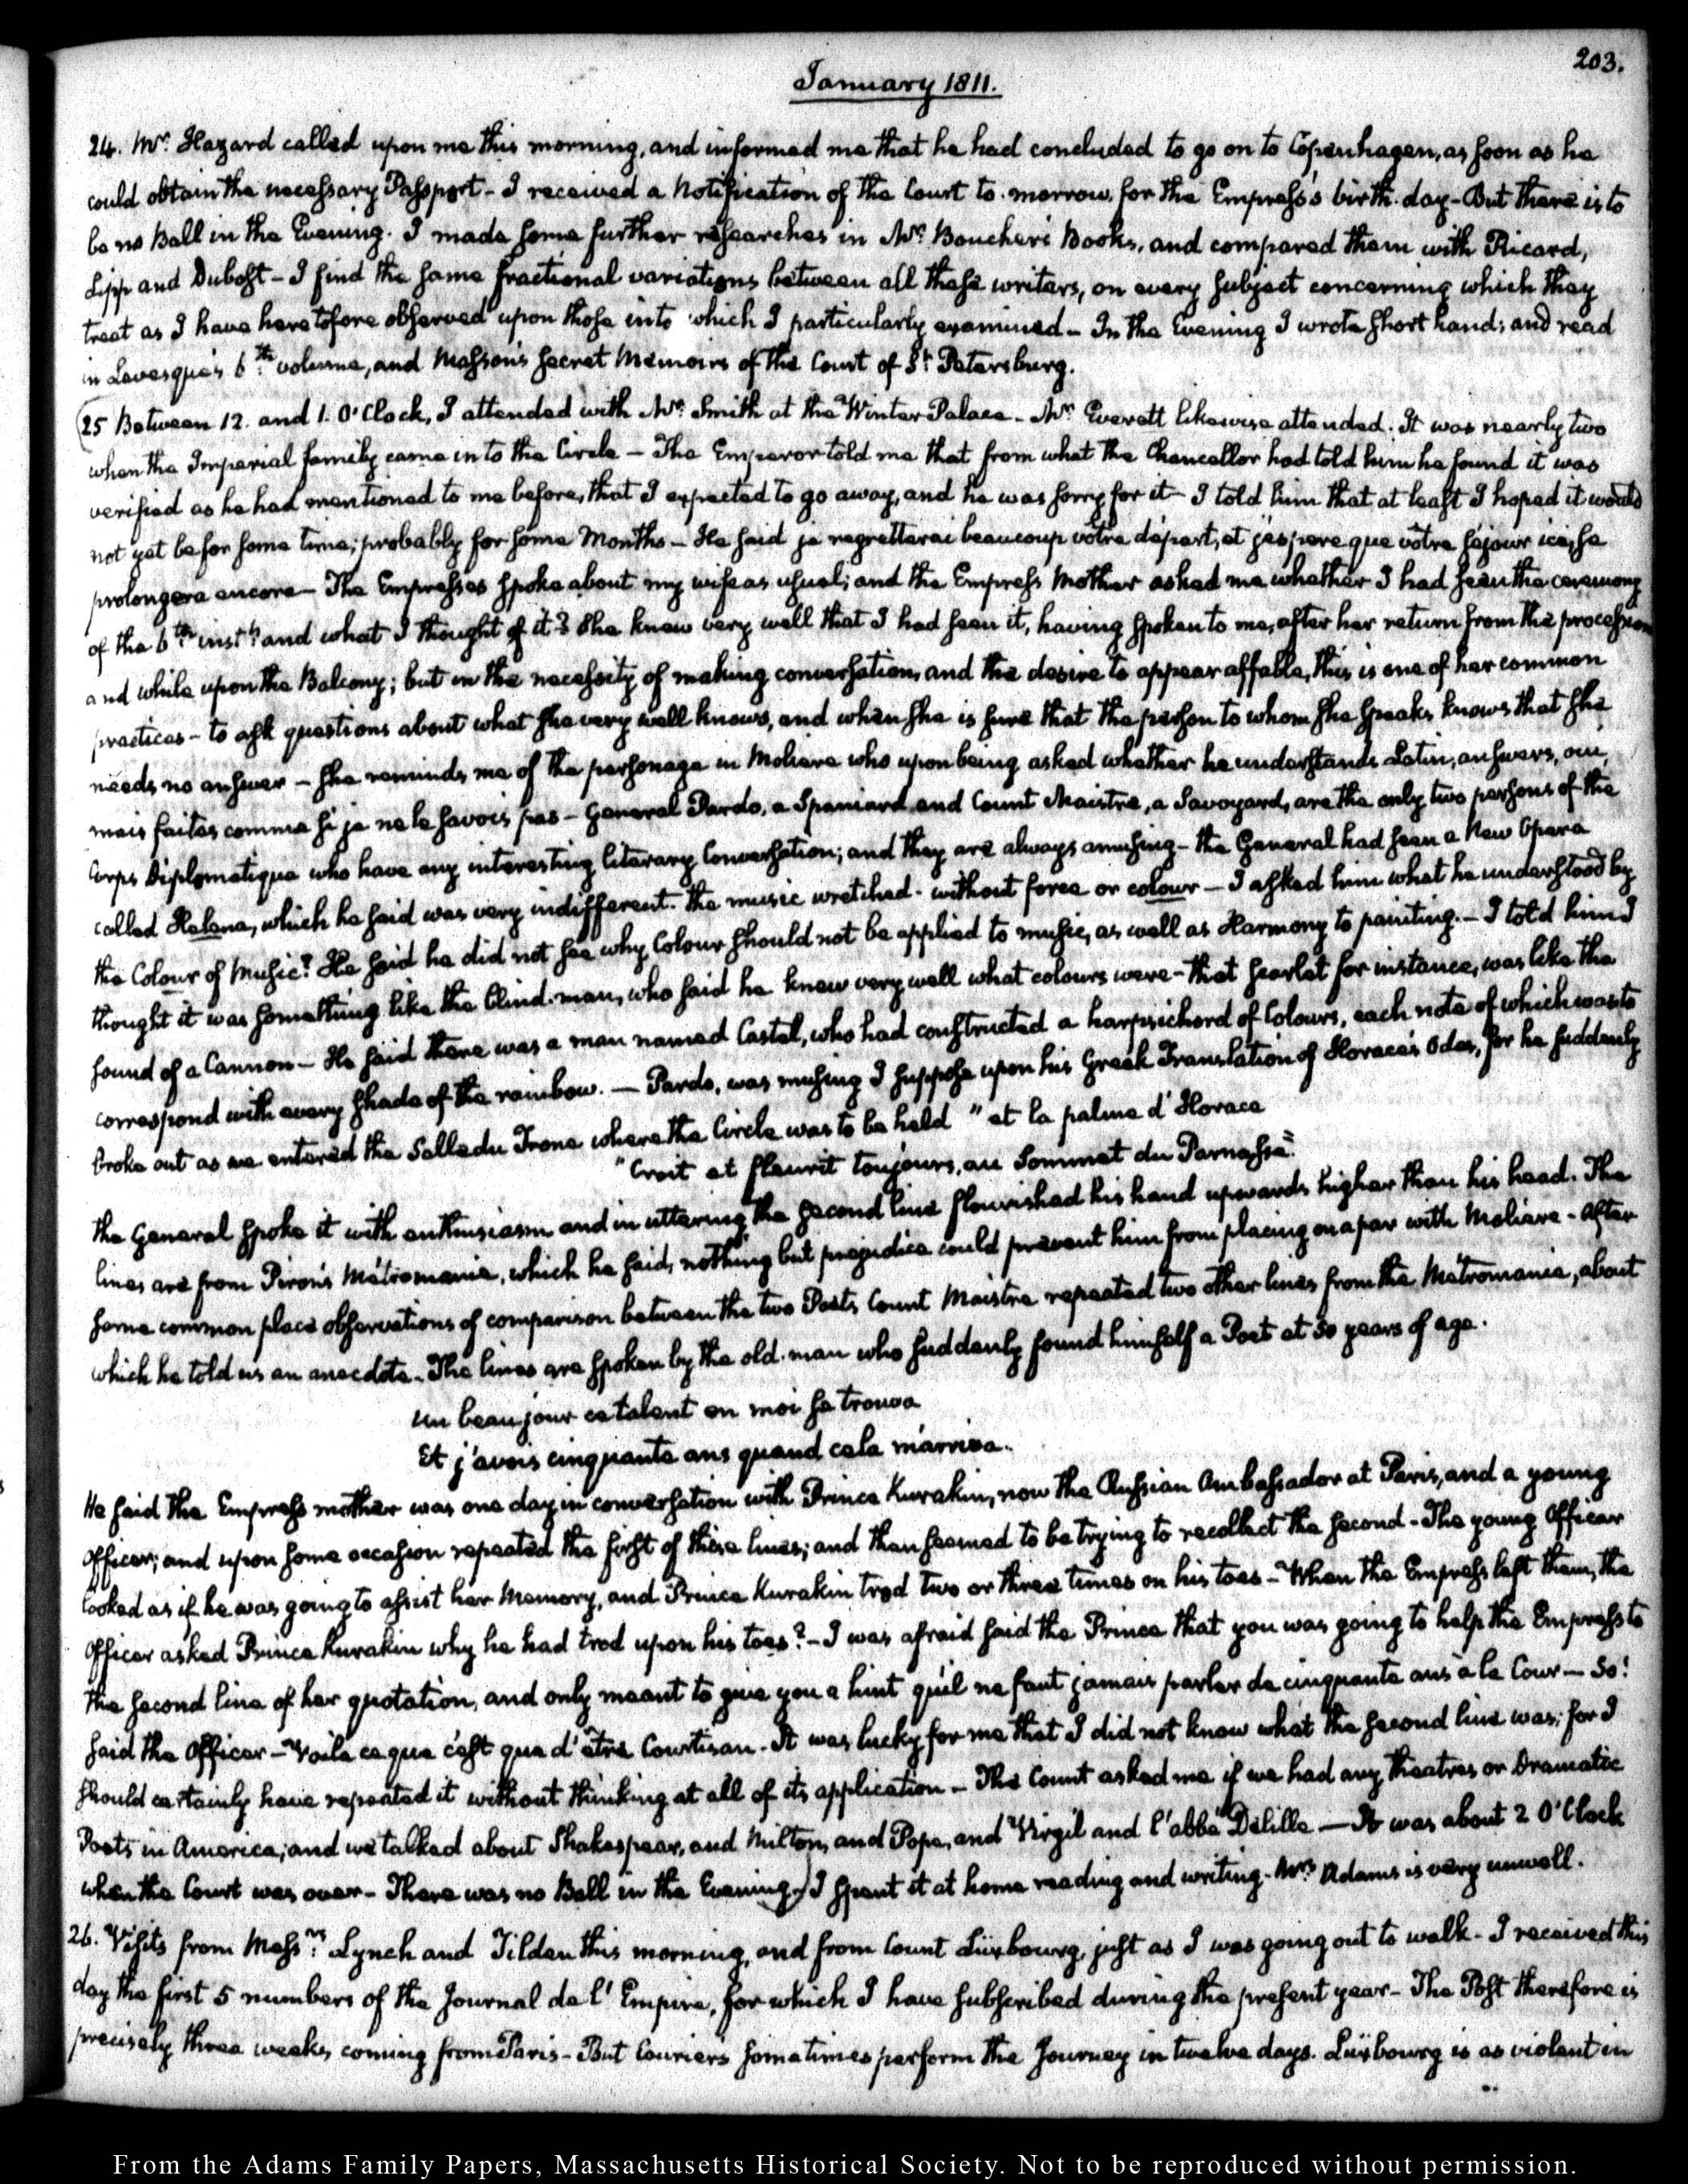 203.
January 1811.
24. Mr. Hazard called upon me this morning, and informed me that he had concluded to go on to Copenhagen, as soon as he
could obtain the necessary Passport - I received a Notification of the Court to-morrow, for the Empress's birth-day - But there is to
be no Ball in the Evening. I made some further researches in Mr. Boucher's Books, and compared them with Ricard,
Lipp and Dubost - I find the same fractional variations between all these writers, on every subject concerning which they
treat as I have heretofore observed upon those into which I particularly examined - In the Evening I wrote short hand; and read
in Levesque's 6th volume, and Masson's Secret Memoirs of the Court of St. Petersburg.
25 Between 12. and 1. O'Clock, I attended with Mr. Smith at the Winter Palace - Mr. Everett likewise attended. It was nearly two
when the Imperial family came in to the Circle - The Emperor told me that from what the Chancellor had told him he found it was
verified as he had mentioned to me before, that I expected to go away, and he was sorry for it - I told him that at least I hoped it would
not yet be for some time; probably for some Months - He said je regretterai beaucoup vôtre départ, et j'espere que vôtre séjour ici, se
prolongera encore - The Empresses spoke about my wife as usual; and the Empress Mother asked me whether I had seen the ceremony
of the 6th inst. and what I thought of it? She knew very well that I had seen it, having spoken to me, after her return from the procession
and while upon the Balcony; but in the necessity of making conversation, and the desire to appear affable, this is one of her common
practices - to ask questions about what she very well knows, and when she is sure that the person to whom she speaks knows that she
needs no answer - She reminds me of the personage in Moliere who upon being asked whether he understands Latin, answers, oui,
mais faites comme si je ne le savois pas - General Pardo, a Spaniard, and Count Maistre, a Savoyard, are the only two persons of the
Corps Diplomatique who have any interesting literary Conversation; and they are always amusing - the General had seen a New Opera
called Helena, which he said was very indifferent. The music wretched - without force or colour - I asked him what he understood by
the Colour of Music? He said he did not see why Colour should not be applied to music, as well as Harmony to painting. - I told him I
thought it was something like the blind-man, who said he knew very well what colours were - that scarlet for instance, was like the
sound of a Cannon - He said there was a man named Castel, who had constructed a harpsichord of Colours, each note of which was to
correspond with every shade of the rainbow. - Pardo, was musing I suppose upon his Greek Translation of Horace's Odes, for he suddenly
broke out as we entered the Salle du Trone where the Circle was to be held "et la palme d'Horace
"Croit et fleurit toujours, au Sommet du Parnasse."
The General spoke it with enthusiasm and in uttering the second line flourished his hand upwards higher than his head. The
lines are from Piron's Métromanie, which he said, nothing but prejudice could prevent him from placing on a par with Moliere - After
some common place observations of comparison between the two Poets Count Maistre repeated two other lines from the Metromanie, about
which he told us an anecdote - The lines are spoken by the old-man who suddenly found himself a Poet at 50 years of age.
Un beau jour ce talent en moi se trouva
Et j'avois cinquante ans quand cela m'arriva.
He said the Empress mother was one day in conversation with Prince Kurakin, now the Russian Ambassador at Paris, and a young
Officer; and upon some occasion repeated the first of these lines; and then seemed to be trying to recollect the second - The young Officer
looked as if he was going to assist her Memory, and Prince Kurakin trod two or three times on his toes - When the Empress left them, the
Officer asked Prince Kurakin why he had trod upon his toes? - I was afraid said the Prince that you was going to help the Empress to
the second line of her quotation, and only meant to give you a hint qu'il ne faut jamais parler de cinquante ans à la Cour - So!
said the Officer - Voila ce que c'est que d'être Courtisan - It was lucky for me that I did not know what the second line was; for I
should certainly have repeated it without thinking at all of its application - The Count asked me if we had any theatres or Dramatic
Poets in America; and we talked about Shakespear, and Milton, and Pope, and Virgil and l'abbé Delille - It was about 2 O'Clock
when the Court was over - There was no Ball in the Evening) I spent it at home reading and writing - Mrs. Adams is very unwell.
26. Visits from Messrs. Lynch and Tilden this morning, and from Count Lüxbourg, just as I was going out to walk - I received this
day the first 5 numbers of the Journal de l'Empire, for which I have subscribed during the present year - The Post therefore is
precisely three weeks coming from Paris - But Couriers sometimes perform the Journey in twelve days. Lüxbourg is as violent in
From the Adams Family Papers, Massachusetts Historical Society. Not to be reproduced without permission.